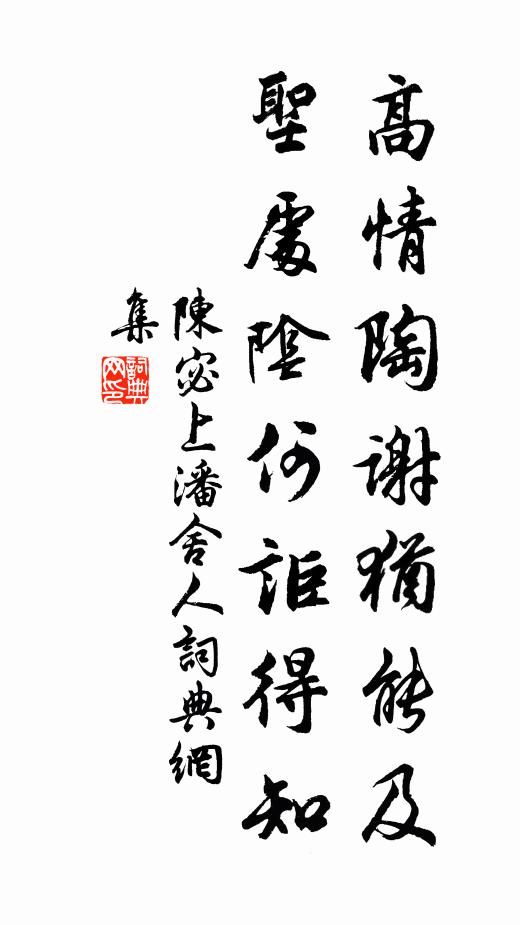 高情陶謝猶能及
聖處陰何詎得知
陳宓上潘舍人詞典網
集
詞典
网印